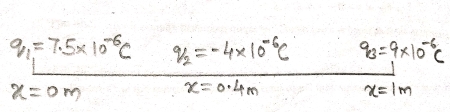 q₁ = 7.5×10⁻⁶C q₂ = -4×10⁻⁶C q₃ = 9×10⁻⁶C
x=0m x=0.4m x=1m